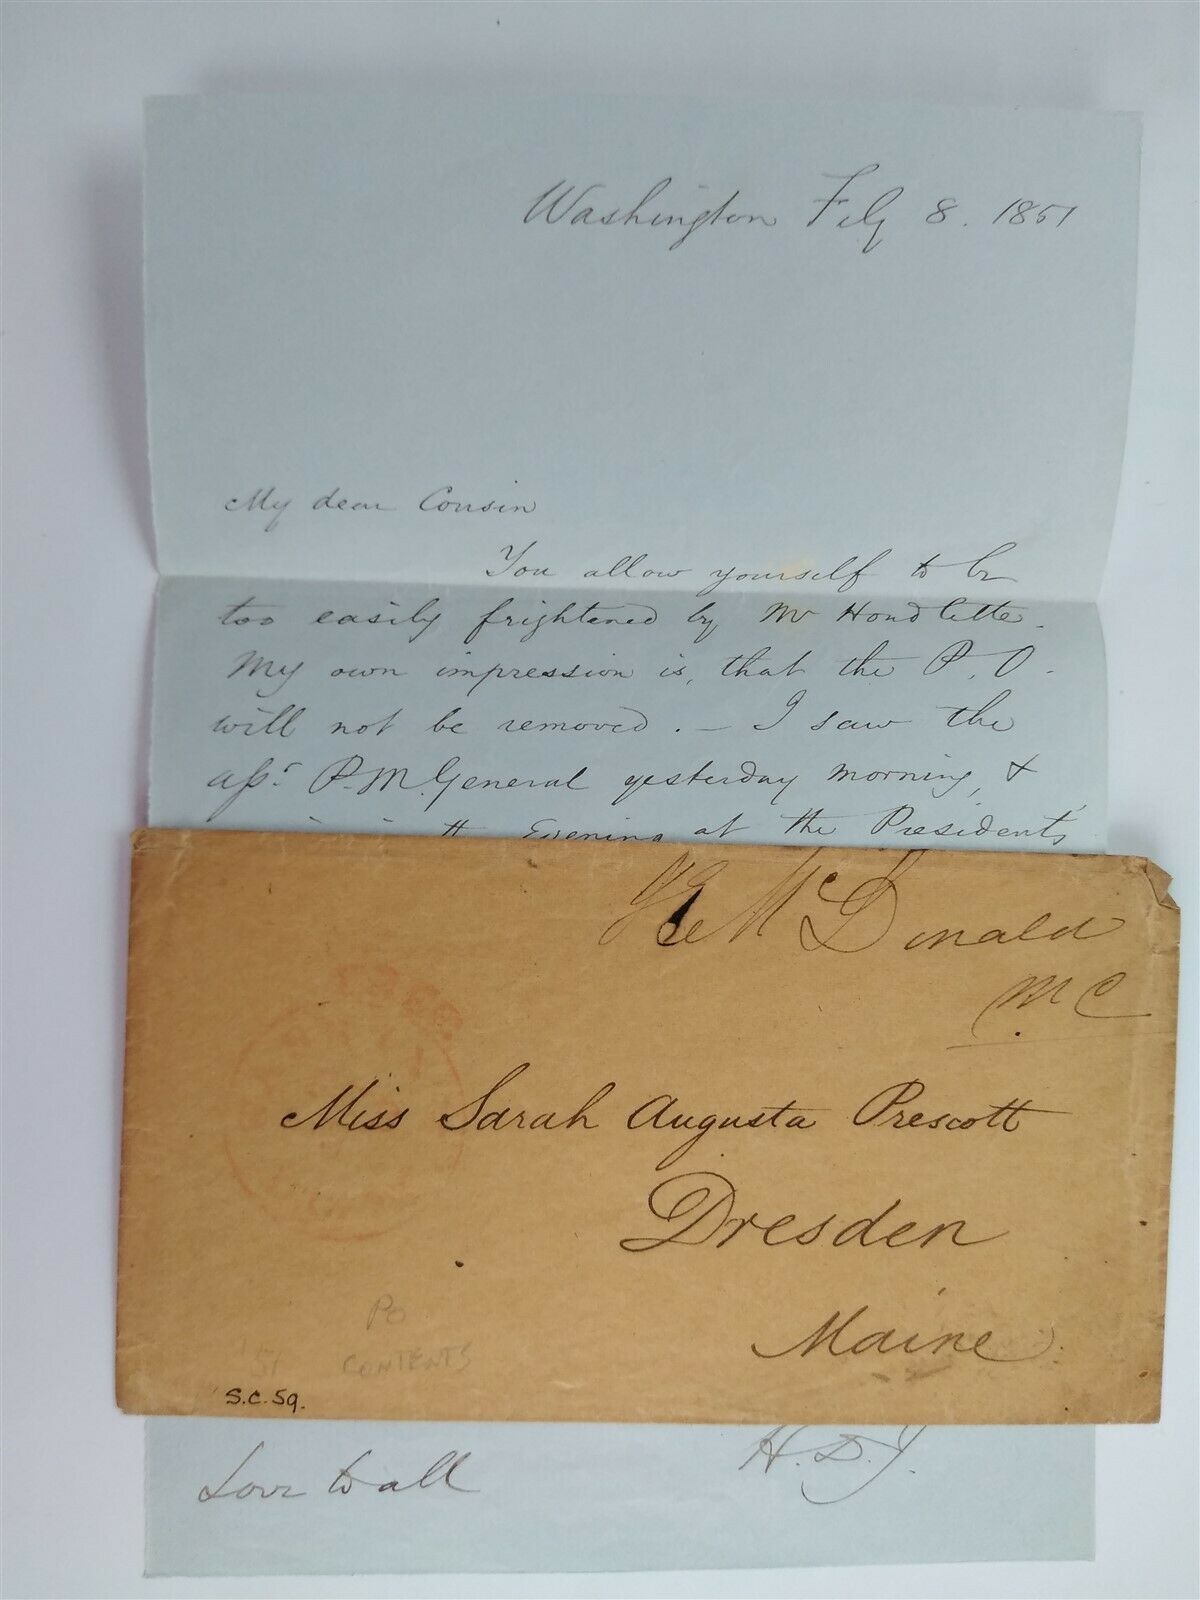 Washington Feby 8. 1851
My dear Cousin
You allow yourself to be
too easily frightened by Mr Houdlette.
My own impression is, that the P. O.
will not be removed. — I saw the
asst P. M. General yesterday morning, &
in the Evening at the Presidents
McDonald
M C
Miss Sarah Augusta Prescott
Dresden
Maine
PO
CONTENTS
S.C. 59.
H. D. J.
Love to all